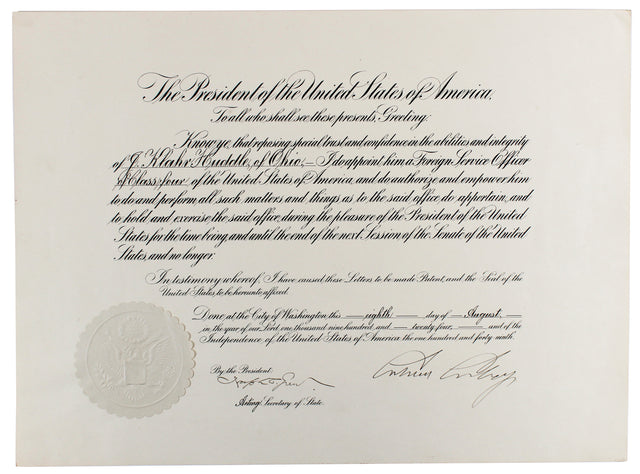 The President of the United States of America.
To all who shall see these presents, Greeting:
Know ye, that reposing special trust and confidence in the abilities and integrity
of J. Klahr Huddle, of Ohio,— I do appoint him a Foreign Service Officer
of Class four of the United States of America, and do authorize and empower him
to do and perform all such matters and things as to the said office do appertain, and
to hold and exercise the said office, during the pleasure of the President of the United
States for the time being, and until the end of the next Session of the Senate of the United
States, and no longer.
In testimony whereof, I have caused these Letters to be made Patent, and the Seal of the
United States to be hereunto affixed.
Done at the City of Washington, this — eighth — day of — August, —
in the year of our Lord, one thousand nine hundred and — twenty four, — and of the
Independence of the United States of America the one hundred and forty ninth.
By the President:
Acting Secretary of State.